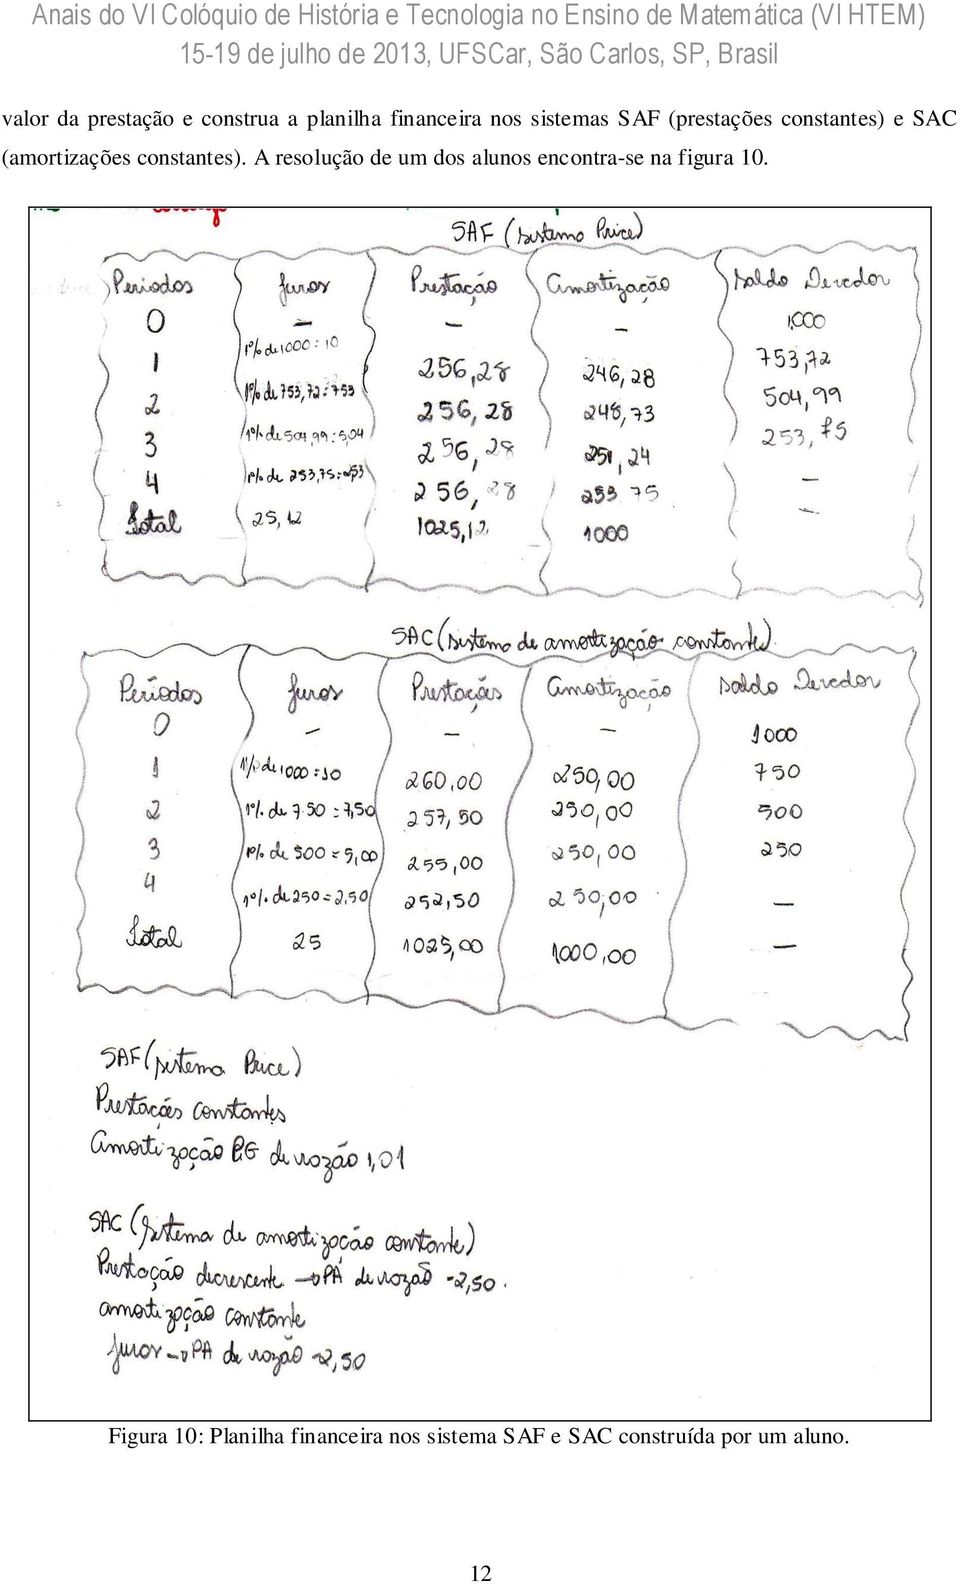 Anais do VI Colóquio de História e Tecnologia no Ensino de Matemática (VI HTEM)
15-19 de julho de 2013, UFSCar, São Carlos, SP, Brasil
valor da prestação e construa a planilha financeira nos sistemas SAF (prestações constantes) e SAC
(amortizações constantes). A resolução de um dos alunos encontra-se na figura 10.
SAF (sistema Price)
Períodos Juros Prestação Amortização Saldo Devedor
0 – – – 1.000
1 1% de 1000 = 10 256,28 246,28 753,72
2 1% de 753,72 = 753 256,28 248,73 504,99
3 1% de 504,99 = 5,04 256,28 251,24 253,75
4 1% de 253,75 = 253 256,28 253 75 –
Total 25,12 1025,12 1000 –
SAC (sistema de amortização constante)
Períodos Juros Prestações Amortização Saldo Devedor
0 – – – 1000
1 1% de 1000 = 10 260,00 250,00 750
2 1% de 7.50 = 7,50 257,50 250,00 500
3 1% de 500 = 5,00 255,00 250,00 250
4 1% de 250 = 2,50 252,50 250,00 –
Total 25 1025,00 1000,00 –
SAF (sistema Price)
Prestações constantes
Amortização P.G de razão 1,01
SAC (Sistema de amortização constante)
Prestação decrescente → PA de razão -2,50.
amortização constante
Juros → PA de razão -2,50
Figura 10: Planilha financeira nos sistema SAF e SAC construída por um aluno.
12